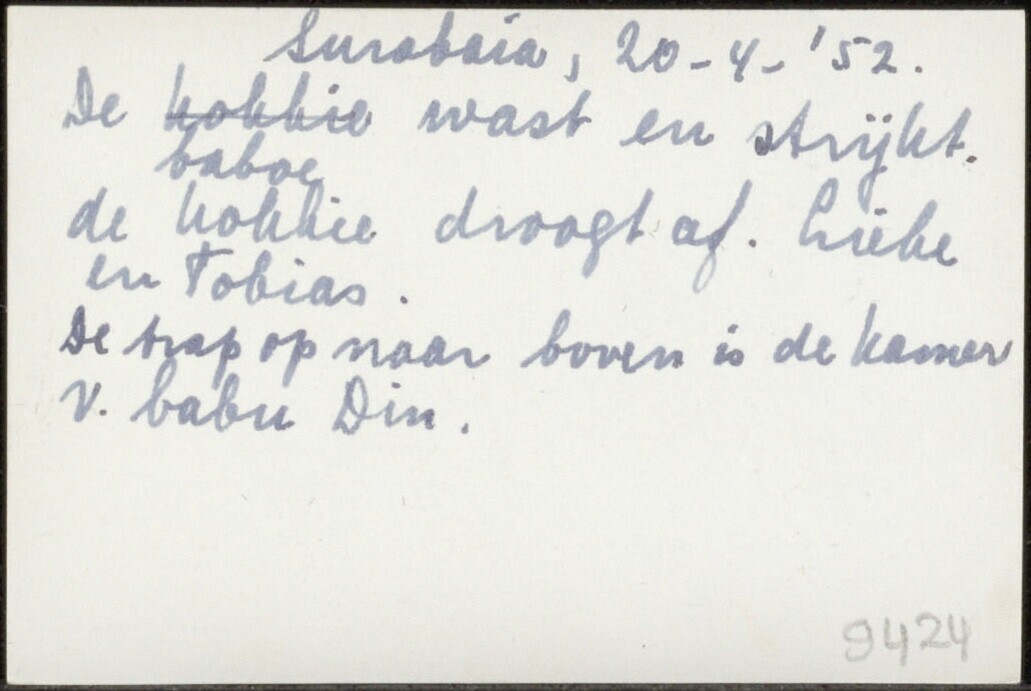 Surabaia, 20-4-'52.
De kokkie wast en strijkt.
baboe
de kokkie droogt af. Liebe
en Tobias.
De trap op naar boven is de kamer
v. babu Din.
9424